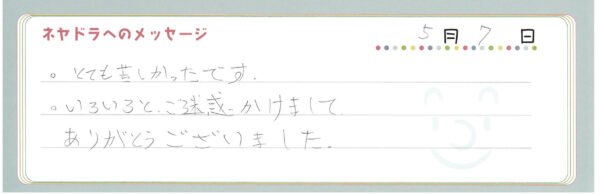 ネヤドラへのメッセージ
5月7日
。とても苦しかったです.
。いろいろと、ご迷惑かけまして
ありがとうございました.